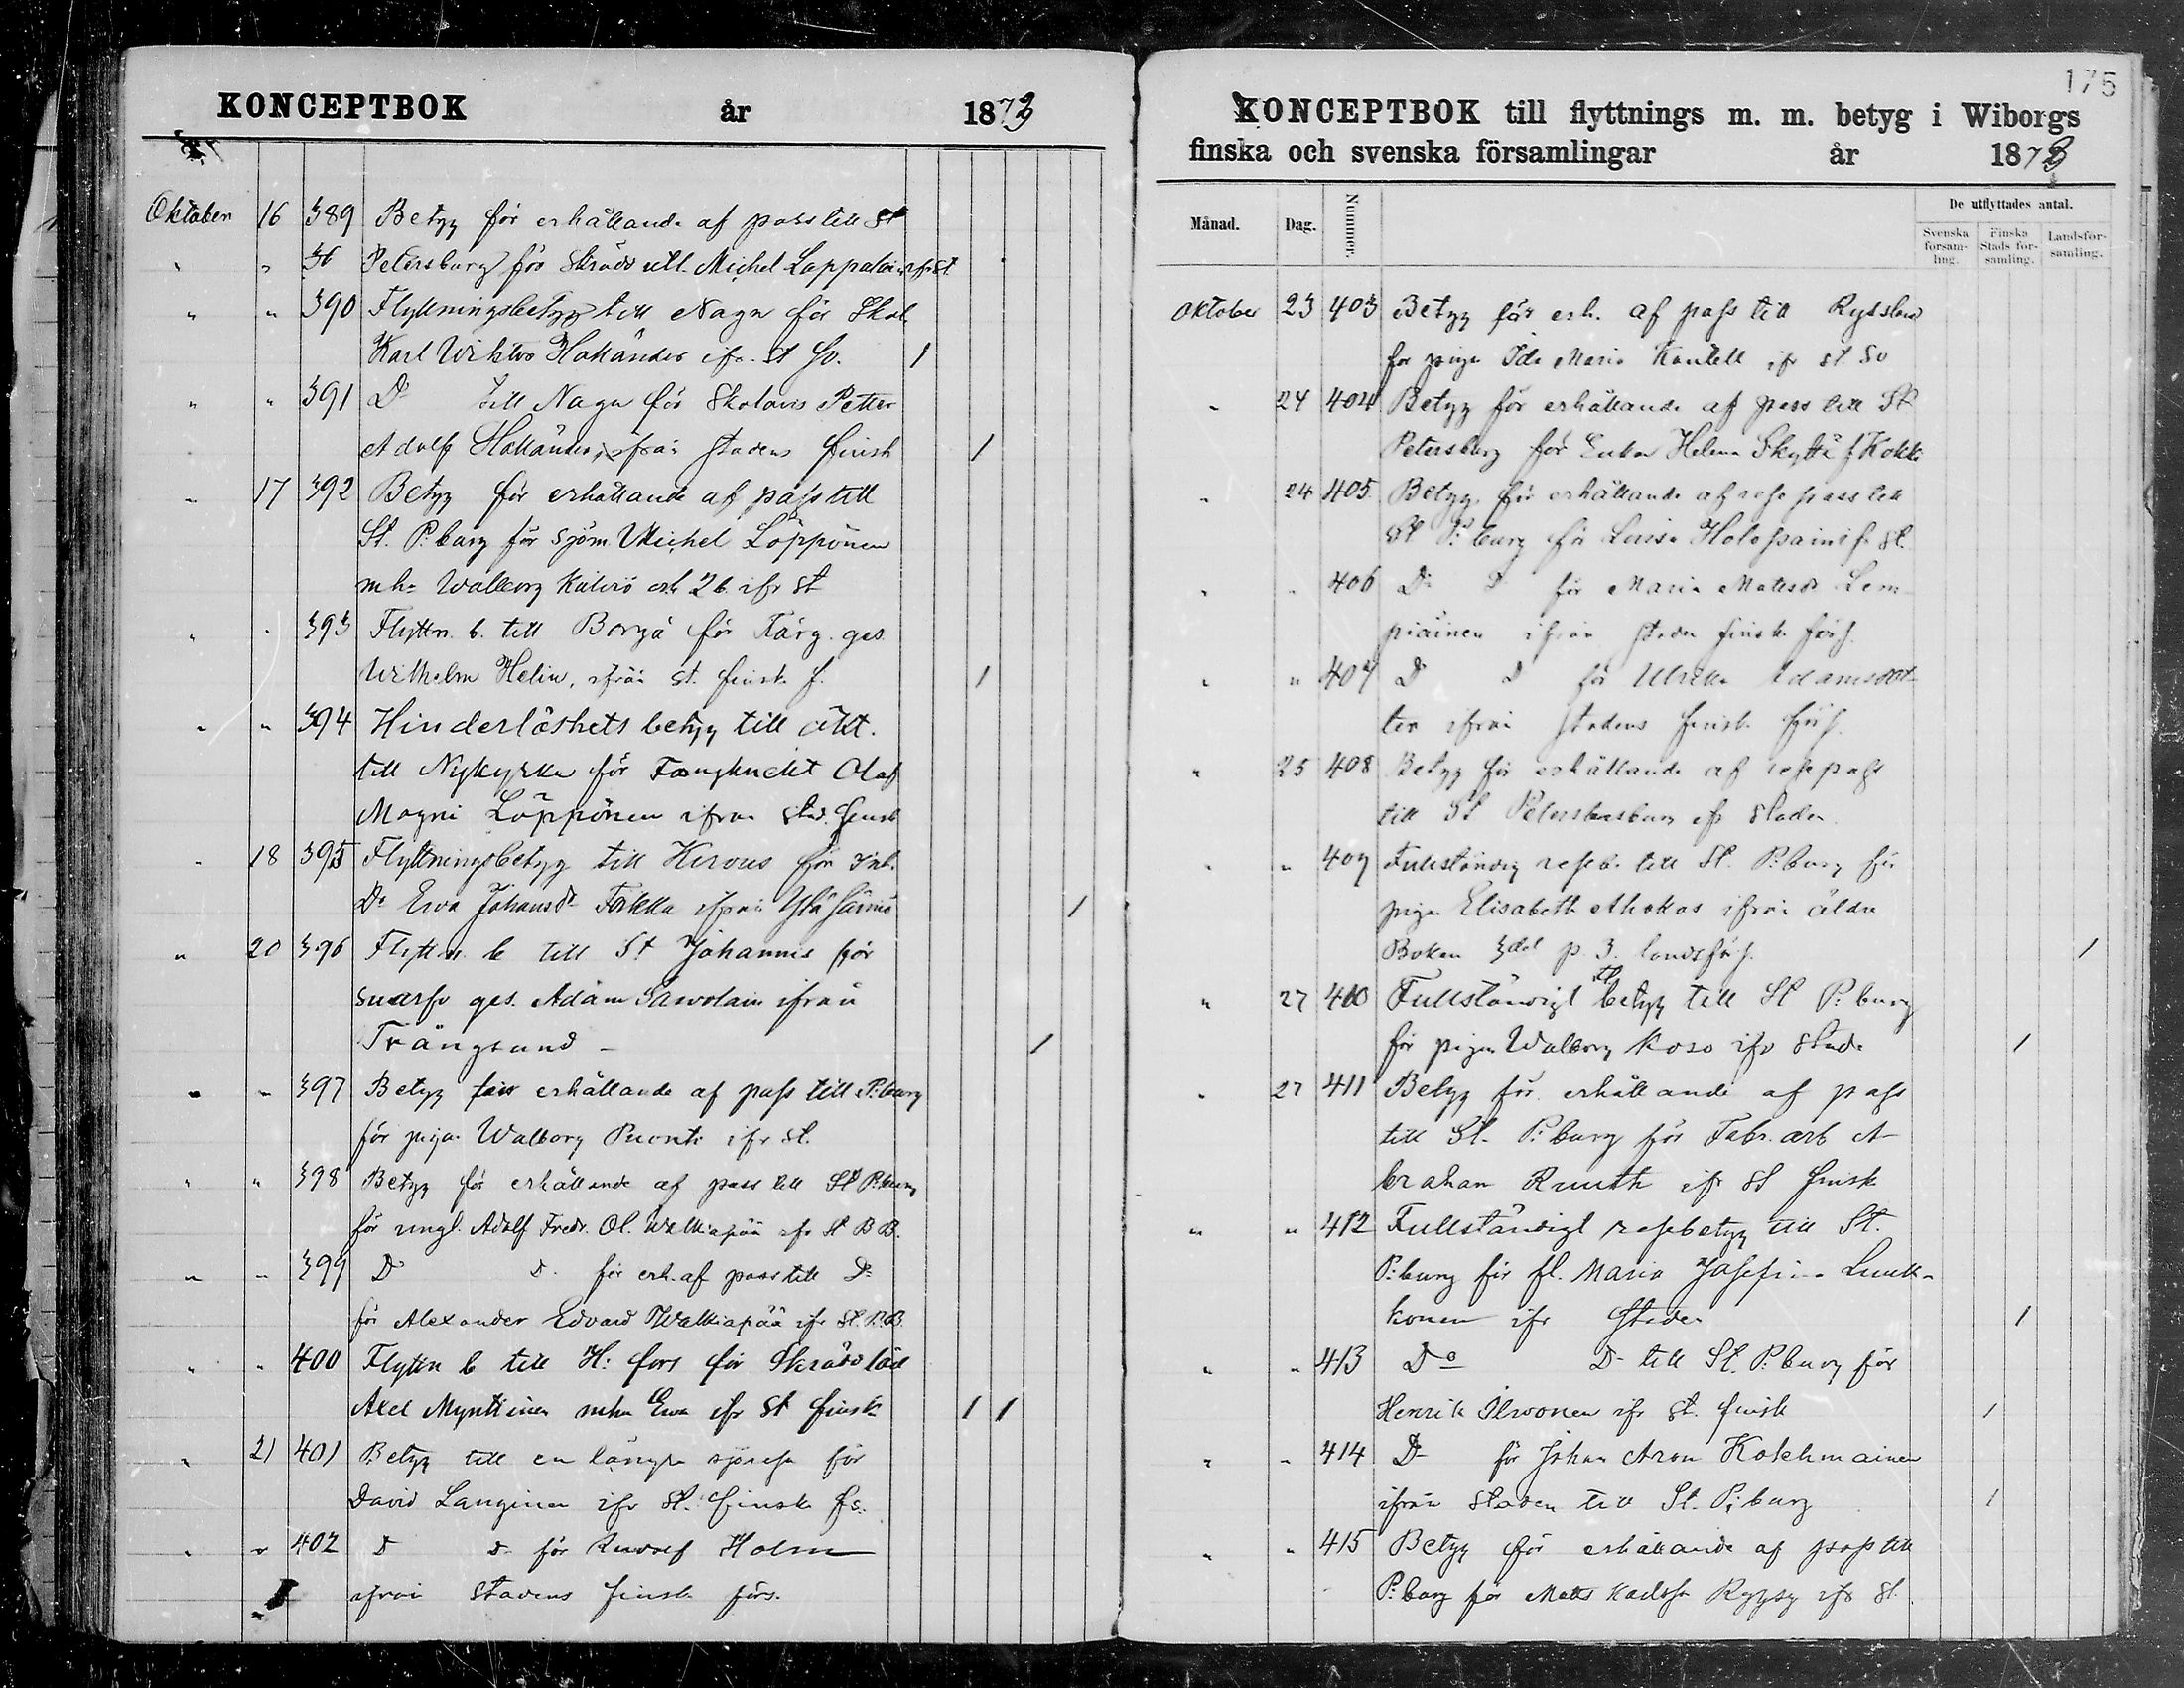 KONCEPTBOK år 1873
Oktober 16 389 Betyg för erhållande af pass till St
" " Petersburg för Michel Lappalain ifr St
" " 390 Flyttningsbetyg till Nagu för Skol.
Karl Wiktor Hollander ifr. St Sv. 1
" " 391 Do till Nagu för Skolaris Petter
Adolf Hollander, ifrån stadens finsk 1
" 17 392 Betyg för erhållande af pass till
St. P:burg för Sjöm Michel Löppönen
mh: Walborg och 2 b. ifr St
" " 393 Flyttn. b. till Borgå för Färg. ges
Wilhelm Helin, ifrån St. finsk f. 1
" " 394 Hinderlöshets betyg till äkt.
till Nykyrka för Fångknekt Olof
Magni Löppönen ifrån Stad. finsk
" 18 395 Flyttningsbetyg till Kivous för Inh.
Dr Ewa Johansdr Torkka ifrån 1
" 20 396 Flyttn. b till St Johannis för
svarfv ges. Adam Sawolain ifrån
Trångsund 1
" " 397 Betyg för erhållande af pass till P:burg
för pigan Walborg Puonti ifr St.
" " 398 Betyg för erhållande af pass till St P:burg
för yngl. Adolf Fredr. Ol. Walkiapää ifr St B B.
" " 399 Do d. för erh. af pass till Do
för Alexander Edvard Walkiapää ifr St. B.B.
" " 400 Flyttn b till H:fors för Skrädd lärl
Axel Mynttinen mh Ewa ifr St finsk 1 1
" 21 401 Betyg till en längre sjöresa för
David Langinen ifr St. finsk fs.
" " 402 D d för Rudolf Holm
ifrån Stadens finsk förs.
175
KONCEPTBOK till flyttnings m. m. betyg i Wiborgs
finska och svenska församlingar år 1873
Månad. Dag. Nummer. De utflyttades antal.
Svenska församling. Finska Stads församling. Landsförsamling.
Oktober 23 403 Betyg för erh. af pass till Ryssland
för pigan Ida Maria Kantell ifr St. Sv
" 24 404 Betyg för erhållande af pass till St
Petersburg för Enkan Helena Skyttä f Kokki
" 24 405 Betyg för erhållande af rese pass till
St P:burg för Lovisa Holopain ifr St.
" " 406 Do D för Maria Mattsdr Lem
piäinen ifrån staden finsk förs.
" " 407 D d för Ulrika Adamsdot
ter ifrån stadens finsk förs.
" 25 408 Betyg för erhållande af resepass
till St Petersbursburg ifr Staden
" " 409 Fullständig reseb. till St. P:burg för
pigan Elisabeth Ahokas ifrån äldre
Boken 3 del p. 3. landsförs. 1
" 27 410 Fullständigt betyg till St P:burg
för pigan Walborg Koso ifr Stade 1
" 27 411 Betyg för erhållande af pass
till St. P:burg för Fabr. arb A
braham Ruuth ifr St finsk
" " 412 Fullständigt resebetyg till St.
P:burg för fl. Maria Josefina Luuk-
konen ifr Staden 1
" " 413 Do D till St. P:burg för
Henrik Ilwonen ifr St. finsk 1
" " 414 D för Johan Aron Kolehmainen
ifrån Staden till St. P:burg 1
" " 415 Betyg för erhållande af pass till
P:burg för Matts Karlsson Rypsy ifr St.